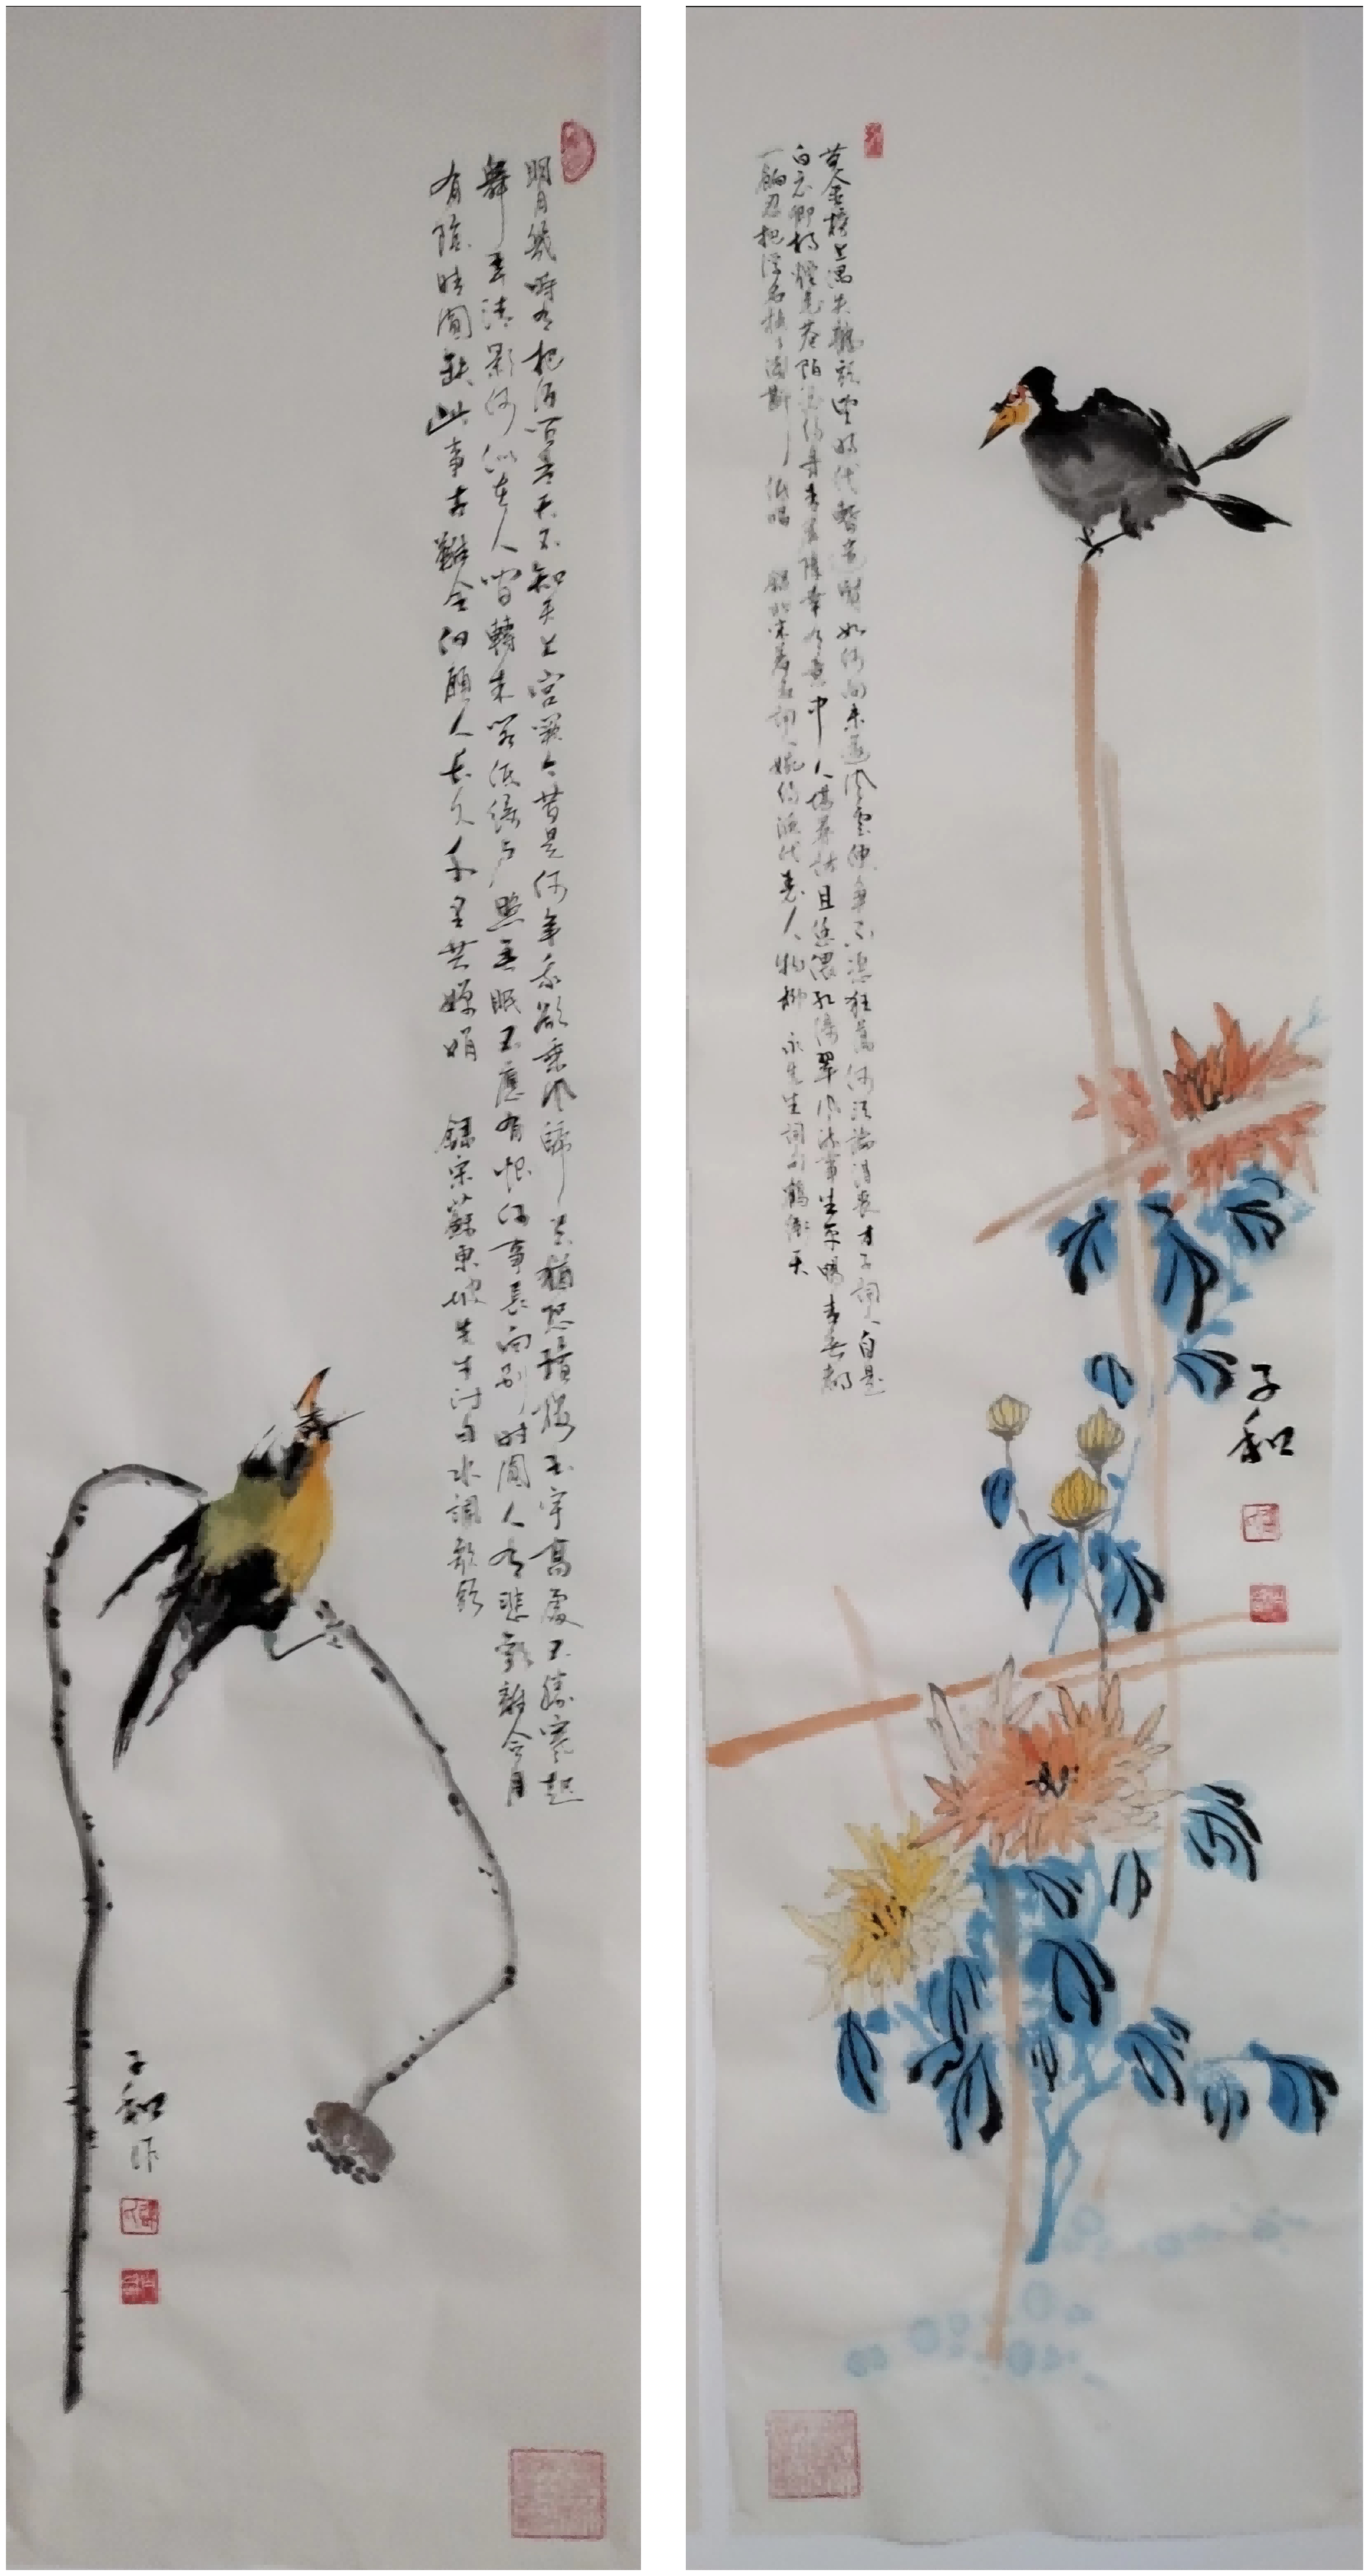 明月幾時有把酒問青天不知天上宮闕今昔是何年我欲乘風歸去猶恐瓊樓玉宇高處不勝寒起
舞弄清影何似在人間轉朱閣低綺戶照無眠不應有恨何事長向別時圓人有悲歡離合月
有陰晴圓缺此事古難全但願人長久千里共嬋娟 錄宋蘇東坡先生詩句水調歌頭
子和作
黃金榜上偶失龍頭望明代暫遺賢如何向未遂風雲便爭不恣狂蕩何須論得喪才子詞人自是
白衣卿相煙花巷陌依約丹青屏障幸有意中人堪尋訪且恁偎紅倚翠風流事生平暢青春都
一餉忍把浮名換了淺斟低唱 錄北宋著名詞人婉約派代表人物柳永先生詞句鶴衝天
子和